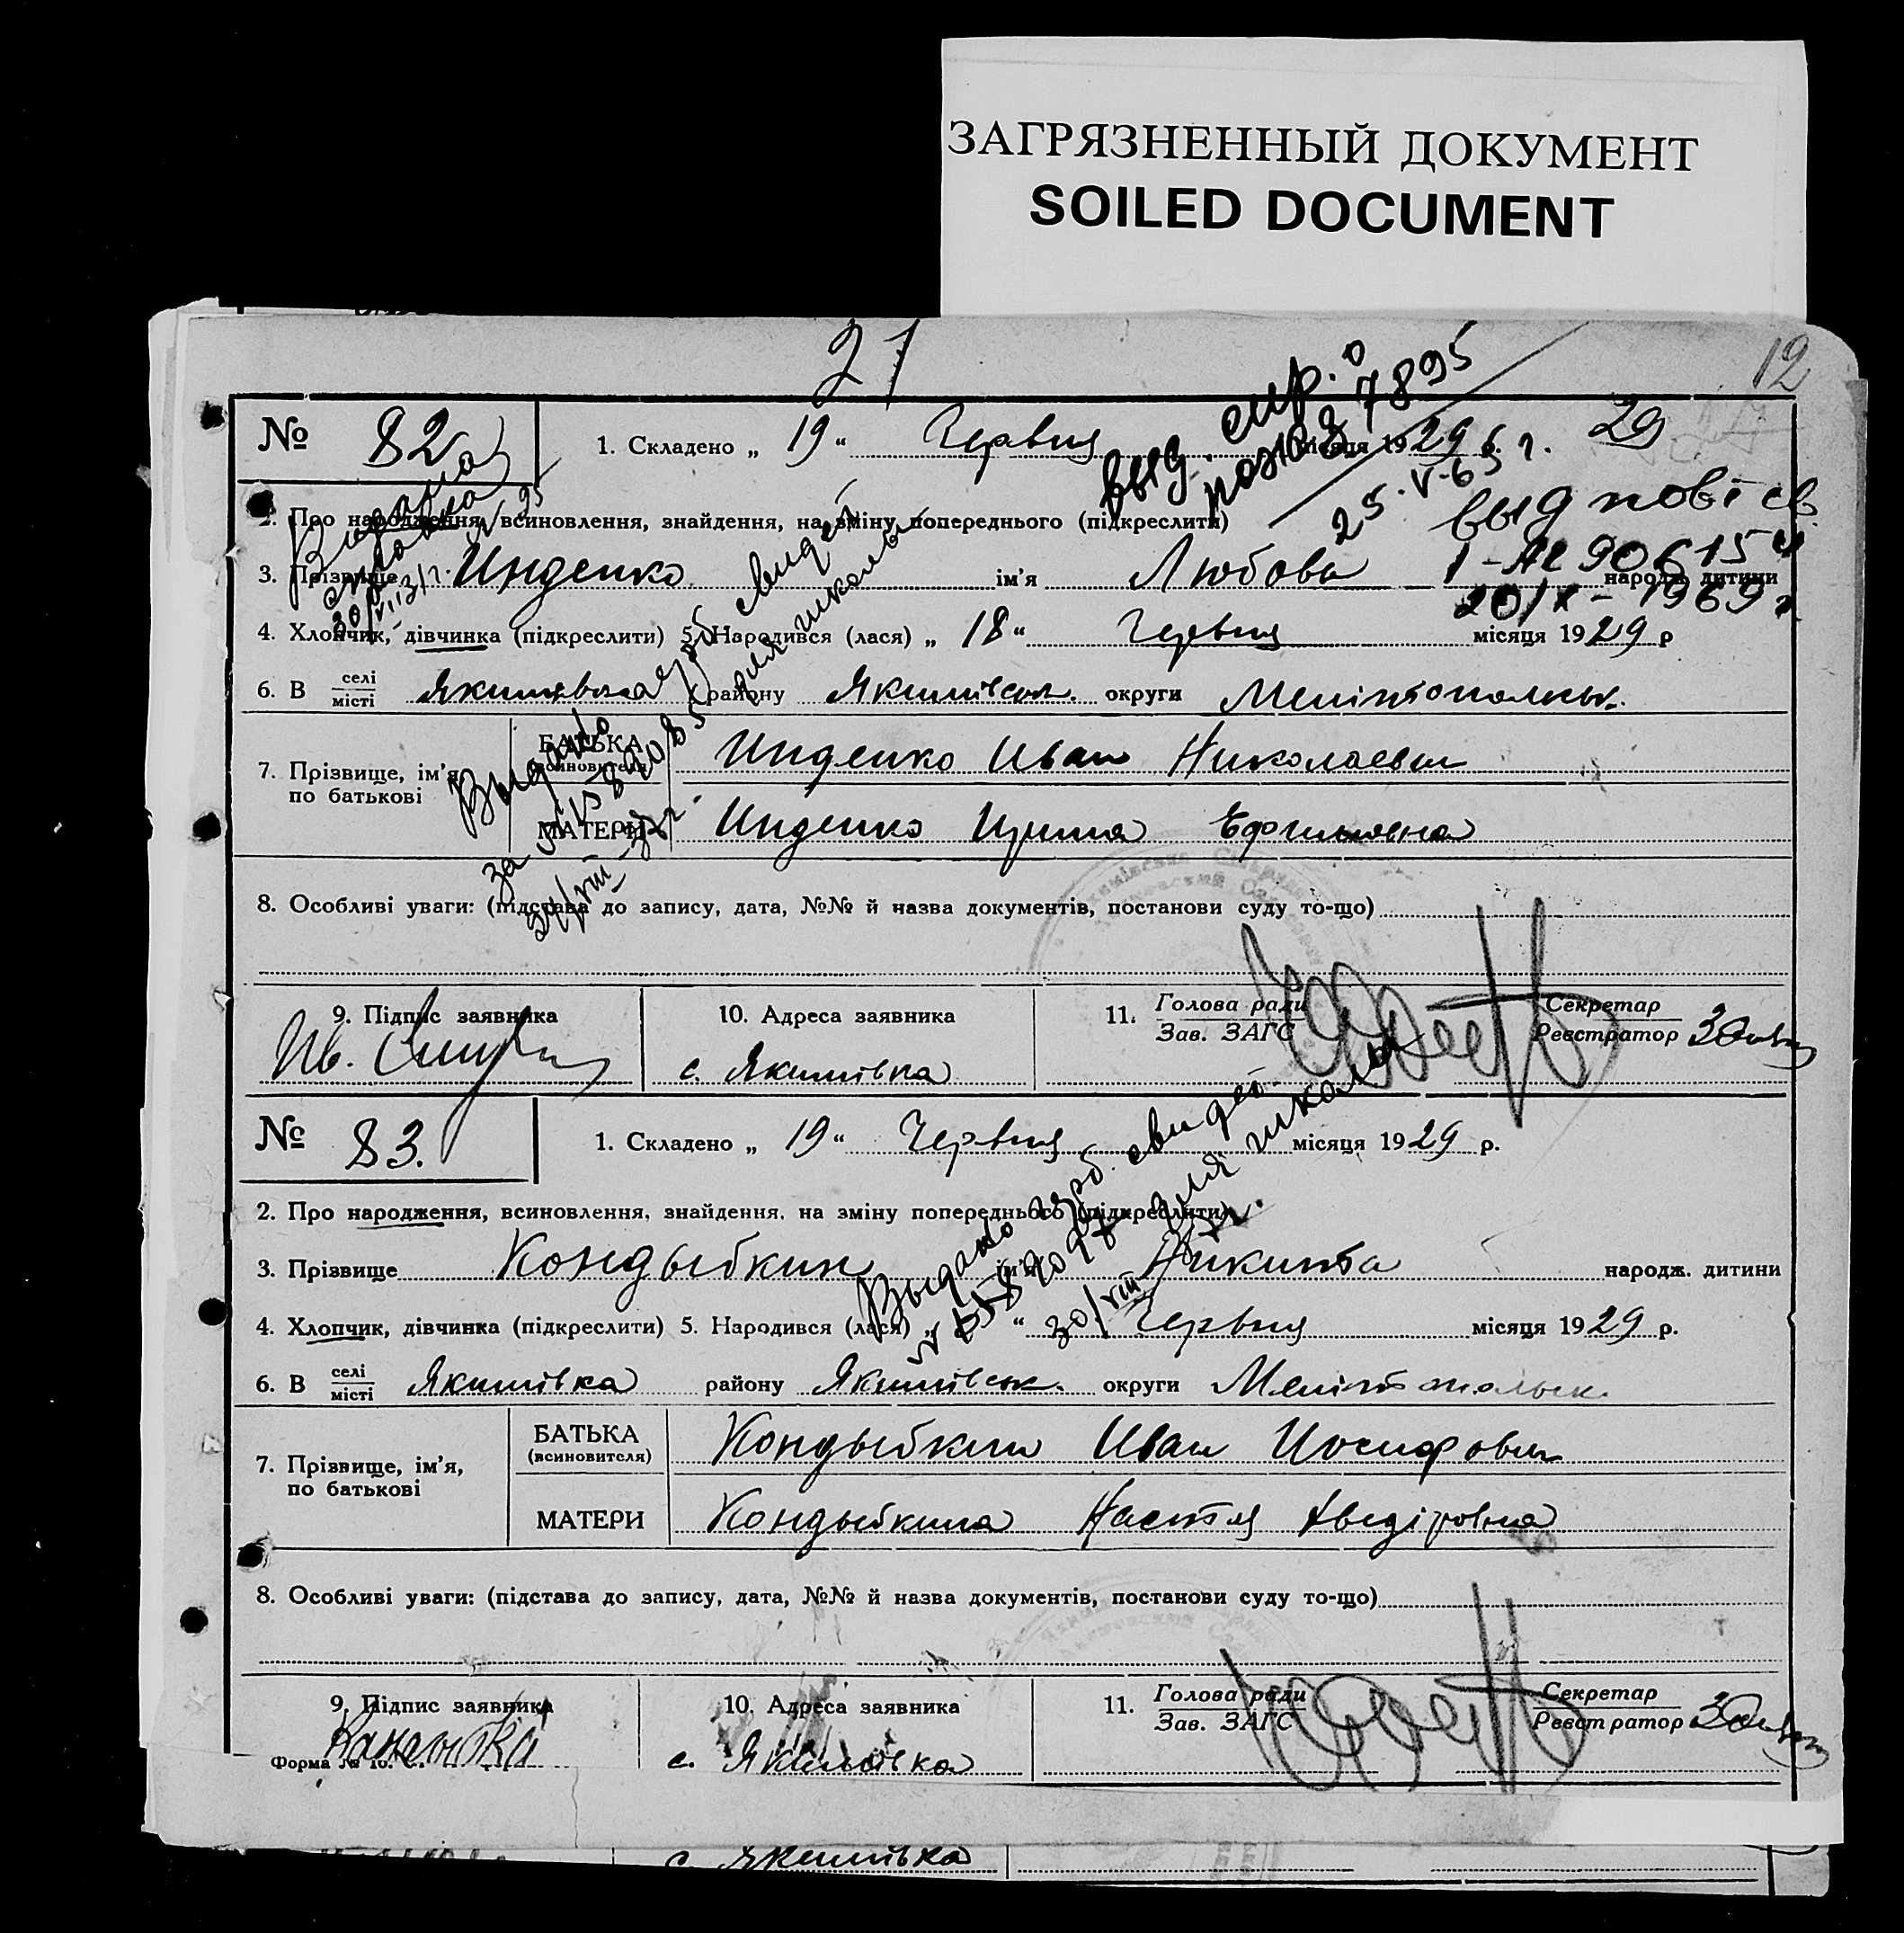 ЗАГРЯЗНЕННЫЙ ДОКУМЕНТ
SOILED DOCUMENT
21
12
№ 82
1. Складено „ 19 “ Червня місяця 1929 р.
29
выд. спр. о
рожд 7895
25-V-63 г.
выд повт св
20/X-1969 г
2. Про народження, всиновлення, знайдення, на зміну попереднього (підкреслити)
3. Прізвище Инденко ім'я Любовь народж. дитини
4. Хлопчик, дівчинка (підкреслити) 5. Народився (лася) „ 18 “ Червня місяця 1929 р
6. В селі/місті району Якимівськ. округи Мелітопольськ.
7. Прізвище, ім'я, по батькові
БАТЬКА (всиновителя) Инденко Иван Николаевич
МАТЕРИ Инденко Ирина
Выдано герб. свидет.
для школы
8. Особливі уваги: (підстава до запису, дата, №№ й назва документів, постанови суду то-що)
9. Підпис заявника
10. Адреса заявника
с. Якимівка
11. Голова ради
Зав. ЗАГС
Секретар
Реєстратор
№ 83.
1. Складено „ 19 “ Червня місяця 1929 р.
2. Про народження, всиновлення, знайдення, на зміну попереднього (підкреслити)
3. Прізвище Кондыбкин ім'я Никита народж. дитини
4. Хлопчик, дівчинка (підкреслити) 5. Народився (лася) „ “ Червня місяця 1929 р.
Выдано герб. свидет.
для школы
6. В селі/місті Якимівка району Якимівськ. округи Мелітопольськ.
7. Прізвище, ім'я, по батькові
БАТЬКА (всиновителя) Кондыбкин Иван Иосифович
МАТЕРИ Кондыбкина Настя
8. Особливі уваги: (підстава до запису, дата, №№ й назва документів, постанови суду то-що)
9. Підпис заявника
10. Адреса заявника
с. Якимівка
11. Голова ради
Зав. ЗАГС
Секретар
Реєстратор
Форма №
с. Якимівка